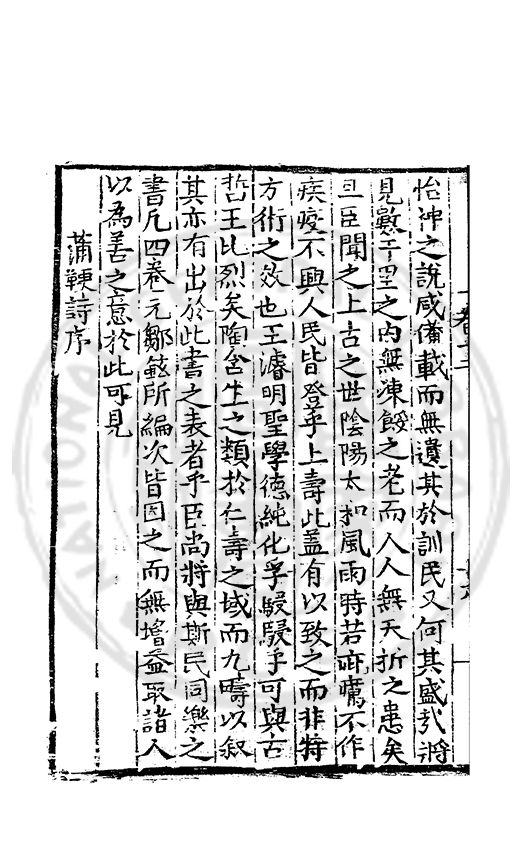 怡神之說咸備載而無遺其於訓民又何其盛哉將
見數千里之內無凍餒之老而人人無夭折之患矣
且臣聞之上古之世陰陽太和風雨時若疹癘不作
疾疫不興人民皆登乎上壽此蓋有以致之而非特
方術之效也王濬明聖學德純化孚駸駸乎可與古
哲王比烈矣陶含生之類於仁壽之域而九疇以叙
其亦有出於此書之表者乎臣尚將與斯民同樂之
書凡四卷元鄒鉉所編次皆因之而無增益取諸人
以為善之意於此可見
蒲鞭詩序